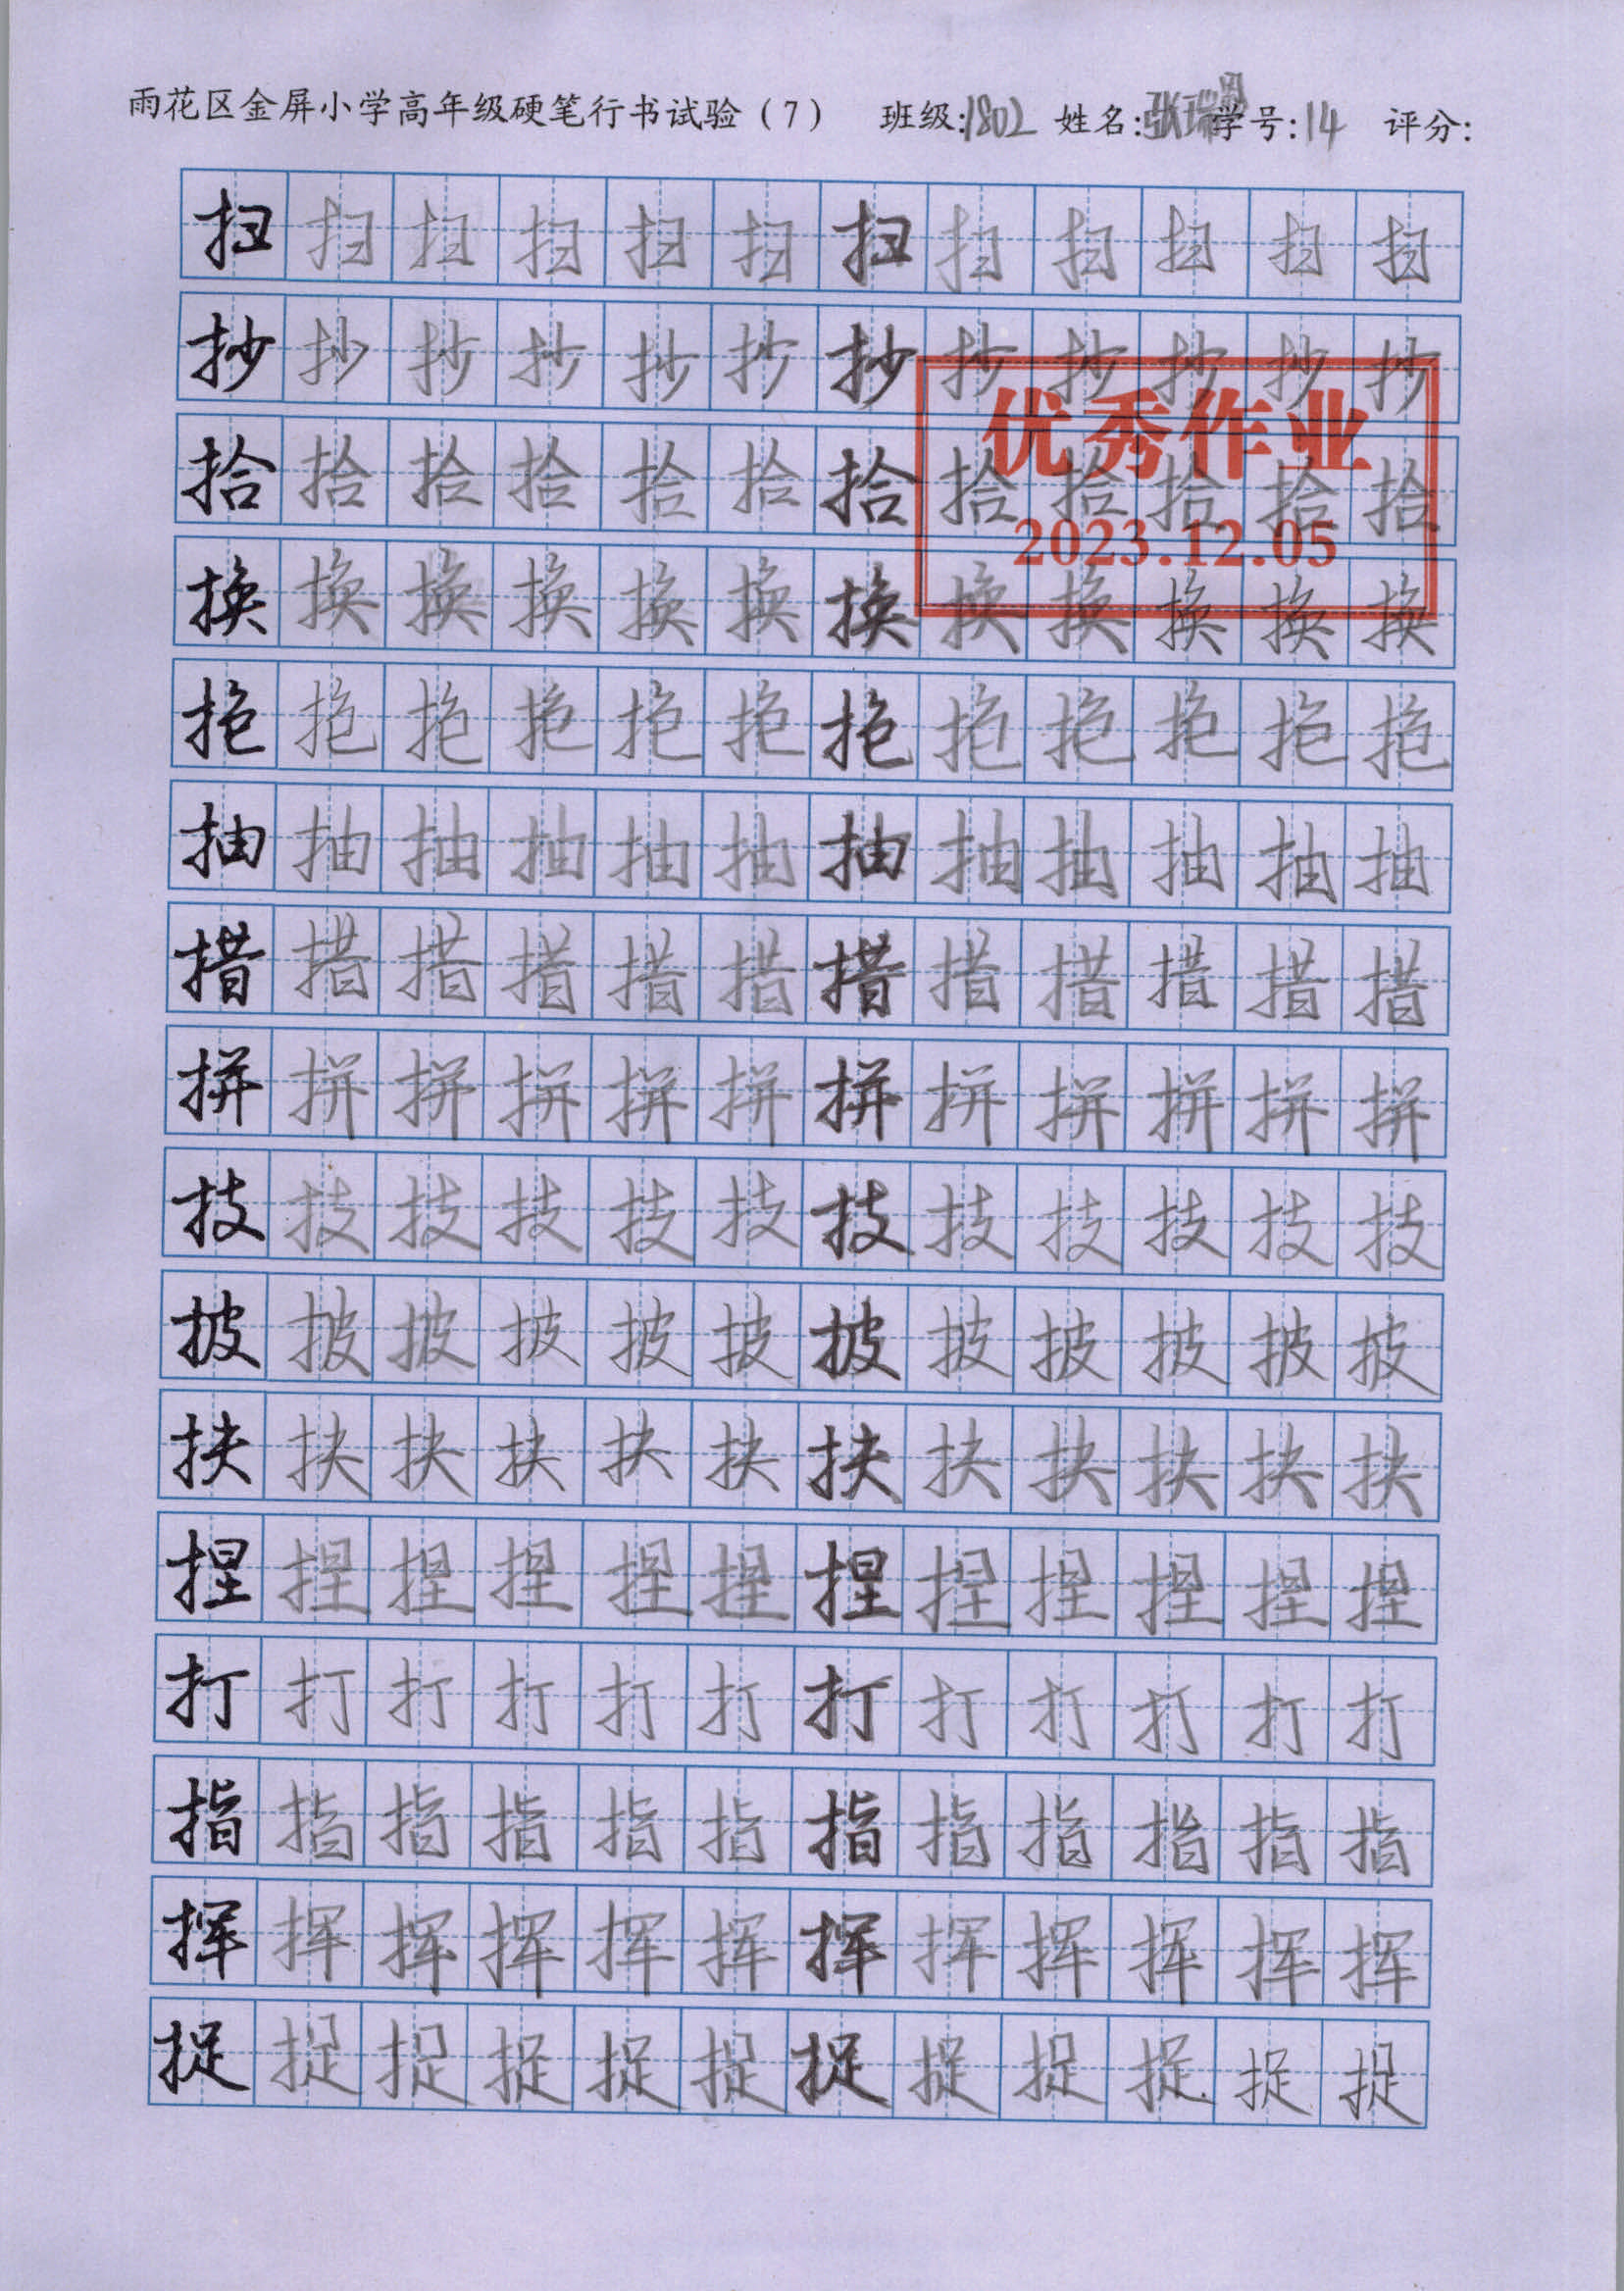 雨花区金屏小学高年级硬笔行书试验（7） 班级:1802 姓名:张瑞 学号:14 评分:
扫扫扫扫扫扫扫扫扫扫扫扫
抄抄抄抄抄抄抄抄抄抄抄抄
优秀作业
拾拾拾拾拾拾拾拾拾拾拾拾
2023.12.05
换换换换换换换换换换换换
抱抱抱抱抱抱抱抱抱抱抱抱
抽抽抽抽抽抽抽抽抽抽抽抽
措措措措措措措措措措措措
拼拼拼拼拼拼拼拼拼拼拼拼
技技技技技技技技技技技技
披披披披披披披披披披披披
扶扶扶扶扶扶扶扶扶扶扶扶
捏捏捏捏捏捏捏捏捏捏捏捏
打打打打打打打打打打打打
指指指指指指指指指指指指
挥挥挥挥挥挥挥挥挥挥挥挥
捉捉捉捉捉捉捉捉捉捉捉捉